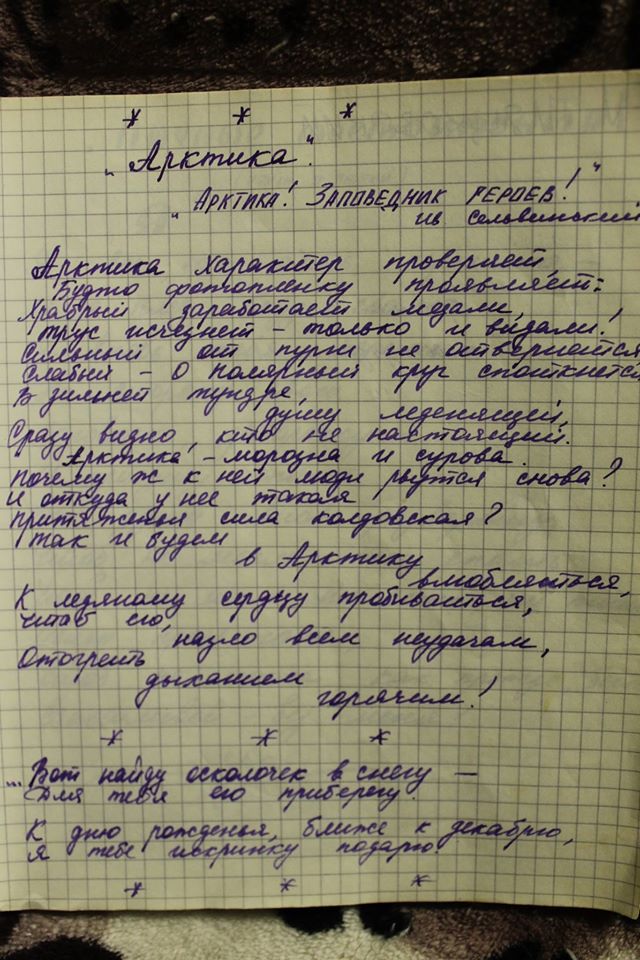 * * *
"Арктика".
"Арктика! Заповедник героев!"
из Сельвинский
Арктика характер проверяет,
Будто фотопленку проявляет:
Храбрый заработает медали,
трус исчезнет - только и видали!
Сильный от пурги не отвернется
Слабый - о полярный круг споткнется
В зимней тундре,
душу леденящей,
Сразу видно, кто не настоящий.
Арктика - морозна и сурова.
Почему ж к ней люди рвутся снова?
И откуда у нее такая
притяженья сила колдовская?
Так и будем
в Арктику
влюбляться,
К ледяному сердцу пробиваться,
Чтоб его,
назло всем неудачам,
Отогреть
дыханием
горячим!
* * *
... Вот найду осколочек в снегу —
Для тебя его приберегу.
К дню рожденья, ближе к декабрю,
Я тебе искринку подарю.
* * *